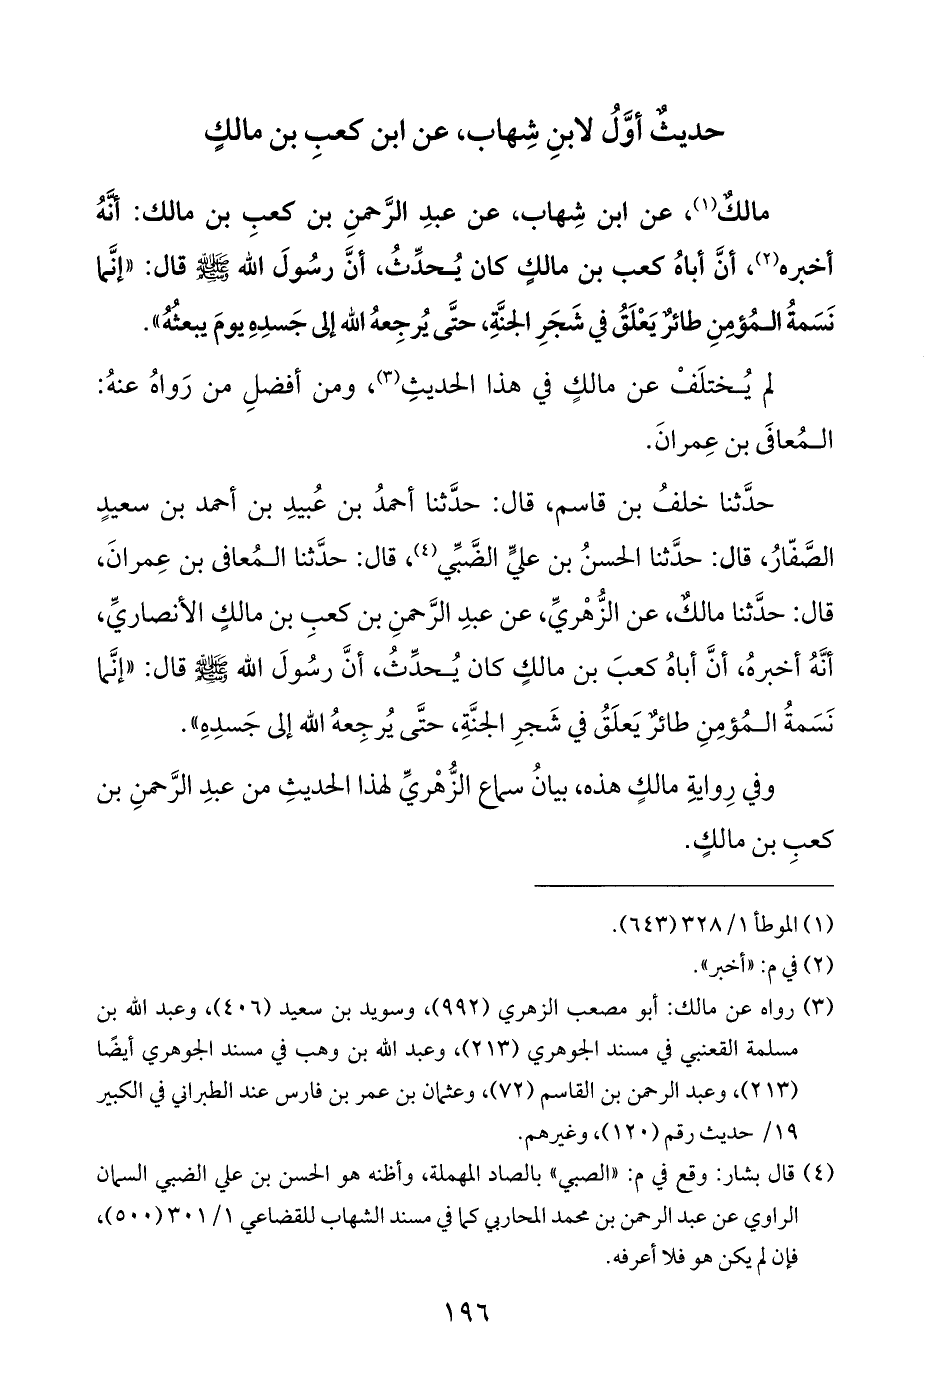 حديثٌ أوَّلُ لابنِ شِهاب، عن ابن كعبِ بن مالكٍ
مالكٌ(١)، عن ابن شِهاب، عن عبدِ الرَّحمنِ بن كعبِ بن مالك: أنَّهُ
أخبره(٢)، أنَّ أباهُ كعب بن مالكٍ كان يُحدِّثُ، أنَّ رسُولَ الله ﷺ قال: «إنَّما
نَسَمةُ المُؤمِنِ طائرٌ يَعْلَقُ في شَجَرِ الجنَّةِ، حتَّى يُرجِعهُ الله إلى جَسدِهِ يومَ يبعثُهُ».
لم يُختلَفْ عن مالكٍ في هذا الحديثِ(٣)، ومن أفضلِ من رَواهُ عنهُ:
المُعافَى بن عِمرانَ.
حدَّثنا خلفُ بن قاسم، قال: حدَّثنا أحمدُ بن عُبيدِ بن أحمد بن سعيدٍ
الصَّفّارُ، قال: حدَّثنا الحسنُ بن عليٍّ الضَّبِّي(٤)، قال: حدَّثنا المُعافى بن عِمرانَ،
قال: حدَّثنا مالكٌ، عن الزُّهْريِّ، عن عبدِ الرَّحمنِ بن كعبِ بن مالكٍ الأنصاريِّ،
أنَّهُ أخبرهُ، أنَّ أباهُ كعبَ بن مالكٍ كان يُحدِّثُ، أنَّ رسُولَ الله ﷺ قال: «إنَّما
نَسَمةُ المُؤمِنِ طائرٌ يَعلَقُ في شَجرِ الجنَّةِ، حتَّى يُرجِعهُ الله إلى جَسدِهِ».
وفي رِوايةِ مالكٍ هذه، بيانُ سماع الزُّهْريِّ لهذا الحديثِ من عبدِ الرَّحمنِ بن
كعبِ بن مالكٍ.
(١) الموطأ ١/ ٣٢٨ (٦٤٣).
(٢) في م: «أخبر».
(٣) رواه عن مالك: أبو مصعب الزهري (٩٩٢)، وسويد بن سعيد (٤٠٦)، وعبد الله بن
مسلمة القعنبي في مسند الجوهري (٢١٣)، وعبد الله بن وهب في مسند الجوهري أيضًا
(٢١٣)، وعبد الرحمن بن القاسم (٧٢)، وعثمان بن عمر بن فارس عند الطبراني في الكبير
١٩/ حديث رقم (١٢٠)، وغيرهم.
(٤) قال بشار: وقع في م: «الصبي» بالصاد المهملة، وأظنه هو الحسن بن علي الضبي السمان
الراوي عن عبد الرحمن بن محمد المحاربي كما في مسند الشهاب للقضاعي ١/ ٣٠١ (٥٠٠)،
فإن لم يكن هو فلا أعرفه.
١٩٦